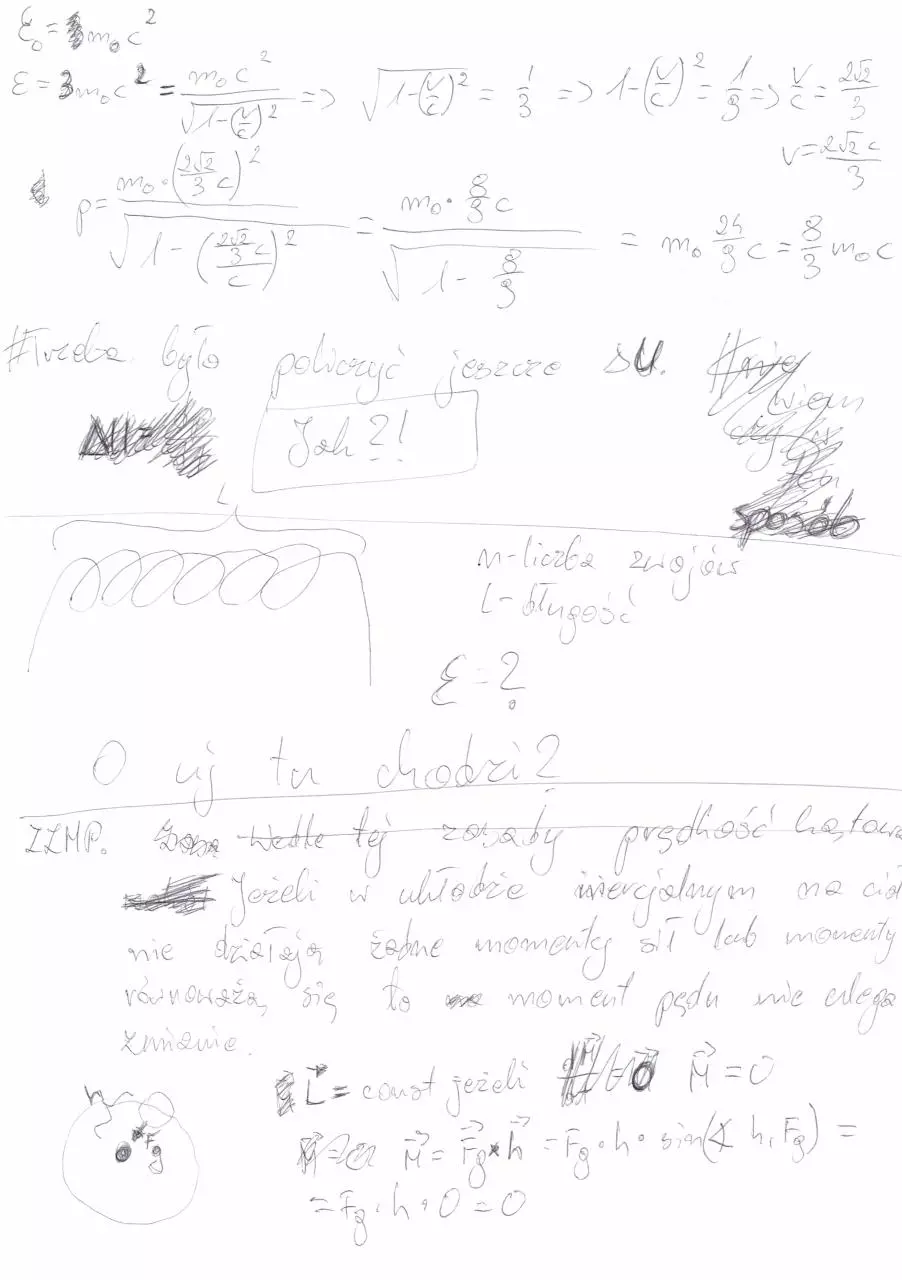 ℰ₀ = m₀c²
ε = 3m₀c² = m₀c² / √(1-(v/c)²) => √(1-(v/c)²) = 1/3 => 1-(v/c)² = 1/9 => v/c = 2√2/3
v = 2√2 c/3
p = m₀·(2√2/3 c)² / √(1-((2√2/3 c)/c)²) = m₀·8/9 c / √(1-8/9) = m₀ 24/9 c = 8/3 m₀c
#Trzeba było policzyć jeszcze su. #nie
wiem
czy w
ten
sposób
Jak ?!
L
n-liczba zwojów
L-długość
ℰ = ?
O uj tu chodzi?
ZZMP. Wedle tej zasady prędkość kątowa
Jeżeli w układzie inercjalnym na ciał
nie działają żadne momenty sił lub momenty
równoważą się to moment pędu nie ulega
zmianie.
L⃗ = const jeżeli M⃗ = 0
M⃗ = F⃗g × h⃗ = Fg · h · sin(∡ h, Fg) =
= Fg · h · 0 = 0
Fg